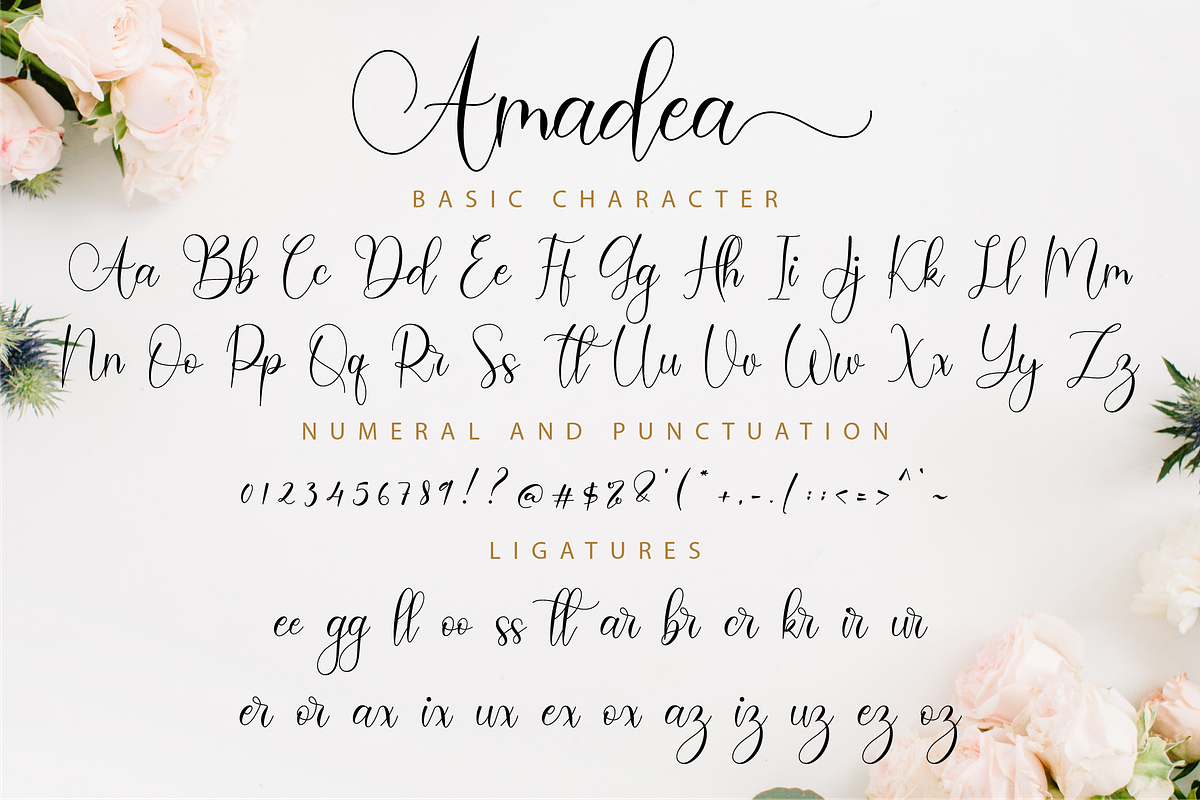 Amadea
BASIC CHARACTER
Aa Bb Cc Dd Ee Ff Gg Hh Ii Jj Kk Ll Mm
Nn Oo Pp Qq Rr Ss tt Uu Vv Ww Xx Yy Zz
NUMERAL AND PUNCTUATION
0123456789!?@#$%&'(*+,-./:;<=>^`~
LIGATURES
ee gg ll oo ss tt ar br cr kr ir ur
er or ax ix ux ex ox az iz uz ez oz